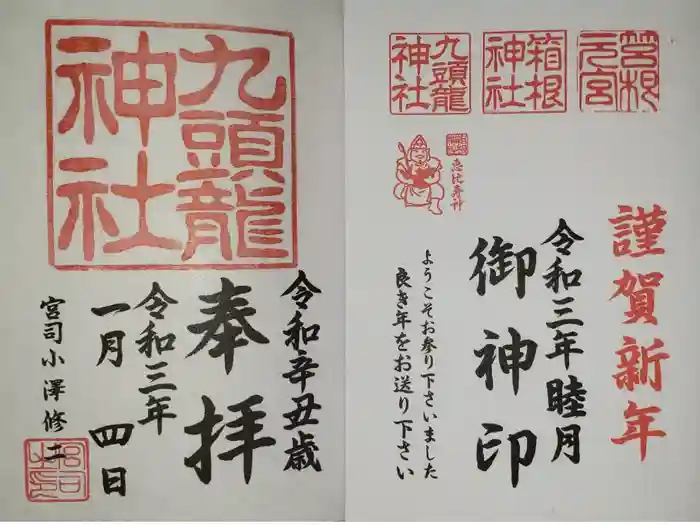 九頭龍
神社
令和辛丑歳
奉拝
令和三年
一月四日
宮司小澤修二
箱根
元宮
箱根
神社
九頭龍
神社
恵比寿神
謹賀新年
令和三年睦月
御神印
ようこそお参り下さいました
良き年をお送り下さい